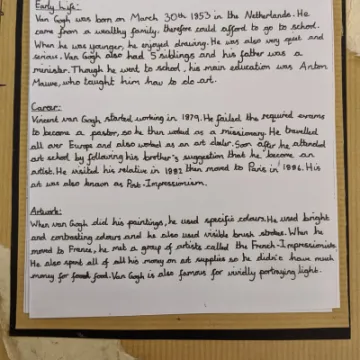 Early Life:
Van Gogh was born on March 30th 1953 in the Netherlands. He
came from a wealthy family, therefore could afford to go to school.
When he was younger, he enjoyed drawing. He was also very quiet and
serious. Van Gogh also had 5 siblings and his father was a
minister. Though he went to school, his main education was Anton
Mauve, who taught him how to do art.
Career:
Vincent van Gogh started working in 1879. He failed the required exams
to become a pastor, so he then worked as a missionary. He travelled
all over Europe and also worked as an art dealer. Soon after he attended
art school by following his brother's suggestion that he become an
artist. He visited his relative in 1881 then moved to Paris in 1886. His
art was also known as Post-Impressionism.
Artwork:
When van Gogh did his paintings, he used specific colours. He used bright
and contrasting colours and he also used visible brush strokes. When he
moved to France, he met a group of artists called the French-Impressionists.
He also spent all of all his money on art supplies so he didn't have much
money for food food. Van Gogh is also famous for vividly portraying light.